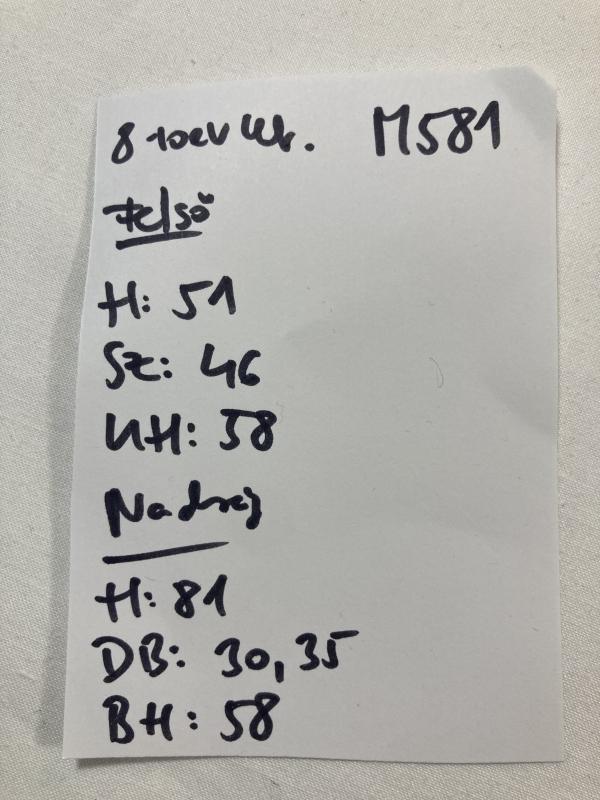 8 M581
Felső
H: 51
Sz: 46
UH: 58
Nadrág
H: 81
DB: 30,35
BH: 58